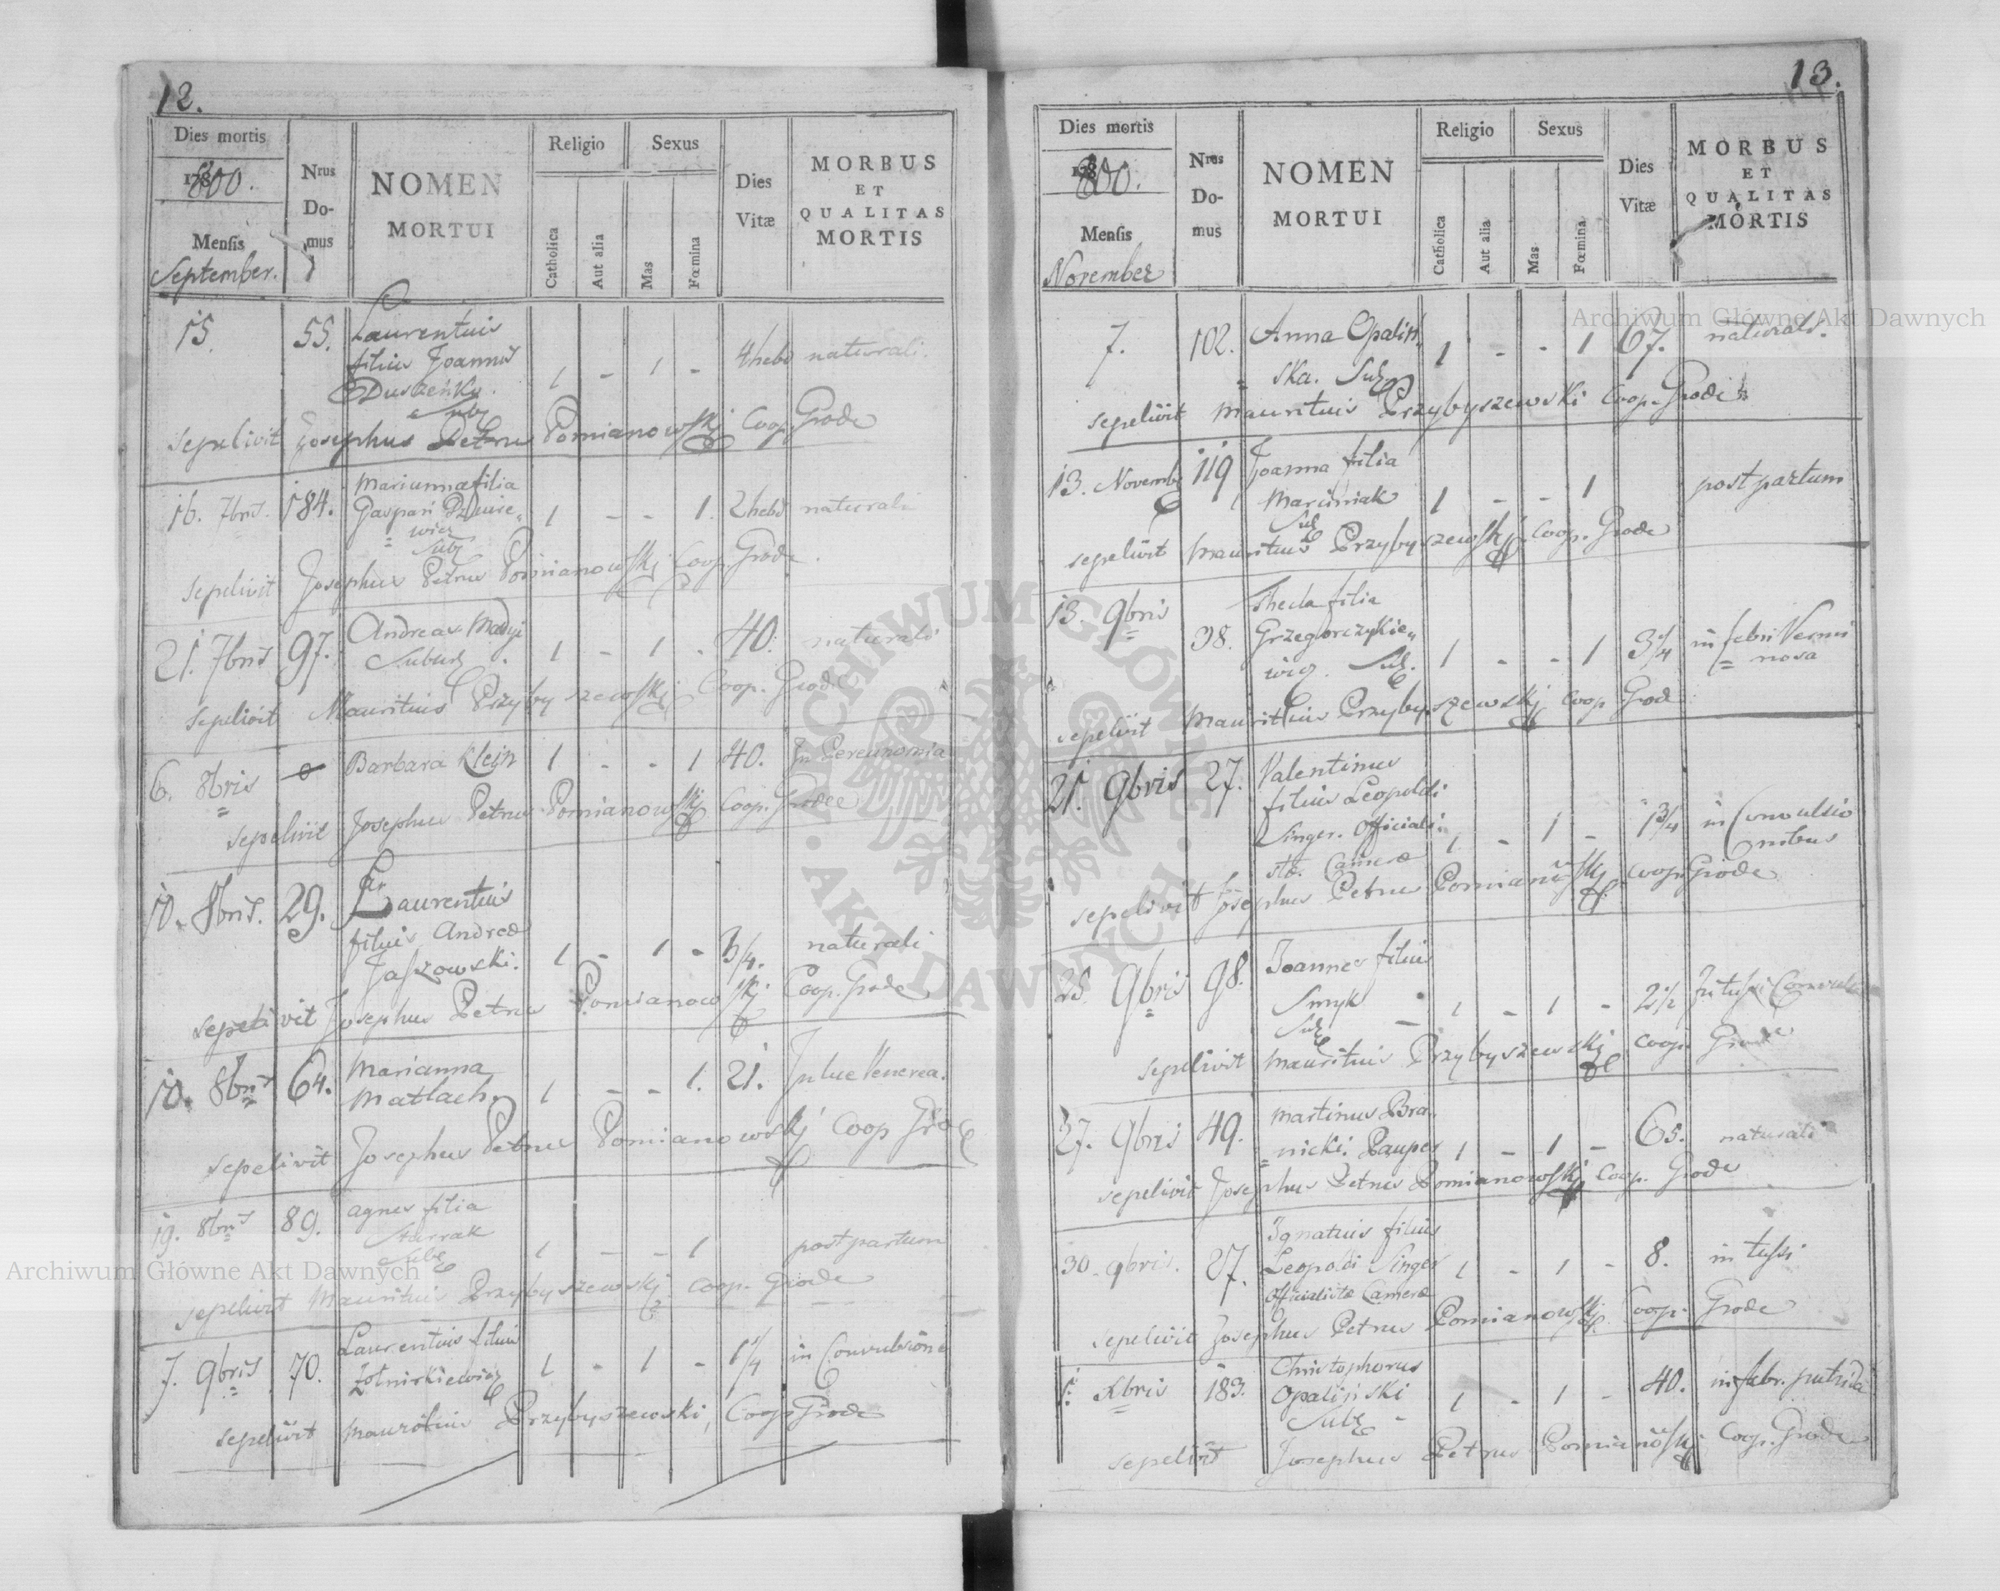 12.
Dies mortis
1800.
Mensis
September.
Nrus
Do-
mus
NOMEN
MORTUI
Religio
Catholica
Aut alia
Sexus
Mas
Fœmina
Dies
Vitæ
MORBUS
ET
QUALITAS
MORTIS
15. 55. Laurentius
filius Joannis
1 - 1 - 4 hebd naturali.
sepelivit Josephus Petrus Pomianowskj Coop. Grode
16. 7bris. 184. Marianna filia
Gaspari
wicz
Sub
1 - - 1. 2 hebd naturali
sepelivit Josephus Petrus Pomianowskj Coop. Grode.
21. 7bris 97. Andreas
Suburb.
1 - 1 - 40. naturali
sepelivit Mauritius Przybyszewskj Coop. Grode
6. 8bris Barbara Klejn 1 - - 1 40.
sepelivit Josephus Petrus Pomianowskj Coop. Grode
10. 8bris. 29. Laurentius
filius Andreæ
Jaszowski.
1 - 1 - 3/4. naturali
sepelivit Josephus Petrus Pomianowskj Coop. Grode
10. 8bris 64. Marianna
Matlach. 1 - - 1. 21. In lue Venerea.
sepelivit Josephus Petrus Pomianowskj Coop Grode
19. 8bris 89. Agnes filia
Sub
1 - - 1 post partum
sepelivit Mauritius Przybyszewskj Coop. Grode
7. 9bris 70. Laurentius filius
Żołnirkiewicz 1 - 1 - 1 1/4 in Convulsione
sepelivit Mauritius Przybyszewski, Coop Grode
13.
Dies mortis
1800.
Mensis
November
Nrus
Do-
mus
NOMEN
MORTUI
Religio
Catholica
Aut alia
Sexus
Mas
Fœmina
Dies
Vitæ
MORBUS
ET
QUALITAS
MORTIS
7. 102. Anna Opaliń
ska. Sub 1 - - 1 67. naturali.
sepelivit Mauritius Przybyszewski Coop. Grode
13. Novemb 119 Joanna filia
Marciniak 1 - - 1 post partum
Sub
sepelivit Mauritius Przybyszewskj Coop. Grode
13. 9bris 98. Thecla filia
Grzegorczykie
wicz. Sub. 1 - - 1 3 1/4 in febri Vermi
nosa
sepelivit Mauritius Przybyszewskj Coop Grod
21. 9bris 27. Valentinus
filius Leopoldi
Singer. Officiali
stæ. Cameræ
1 - 1 - 1 3/4 in Convulsio
nibus
sepelivit Josephus Petrus Pomianowskj Coop. Grode
28. 9bris 98. Joannes filius
Smyk
Sub
1 - 1 - 2 1/2
sepelivit Mauritius Przybyszewskj Coop. Grode
27. 9bris 49. Martinus Bra
nicki. Pauper 1 - 1 - 65. naturali
sepelivit Josephus Petrus Pomianowskj Coop. Grode
30. 9bris. 27. Ignatius filius
Leopoldi Singer
Officialistæ Cameræ
1 - 1 - 8. in tussi
sepelivit Josephus Petrus Pomianowskj Coop. Grode
1. Xbris 183. Christophorus
Opaliński
Sub
1 - 1 - 40. in febr. putrida
sepelivit Josephus Petrus Pomianowskj Coop. Grode
Archiwum Główne Akt Dawnych
Archiwum Główne Akt Dawnych
ARCHIWUM GŁÓWNE
AKT DAWNYCH